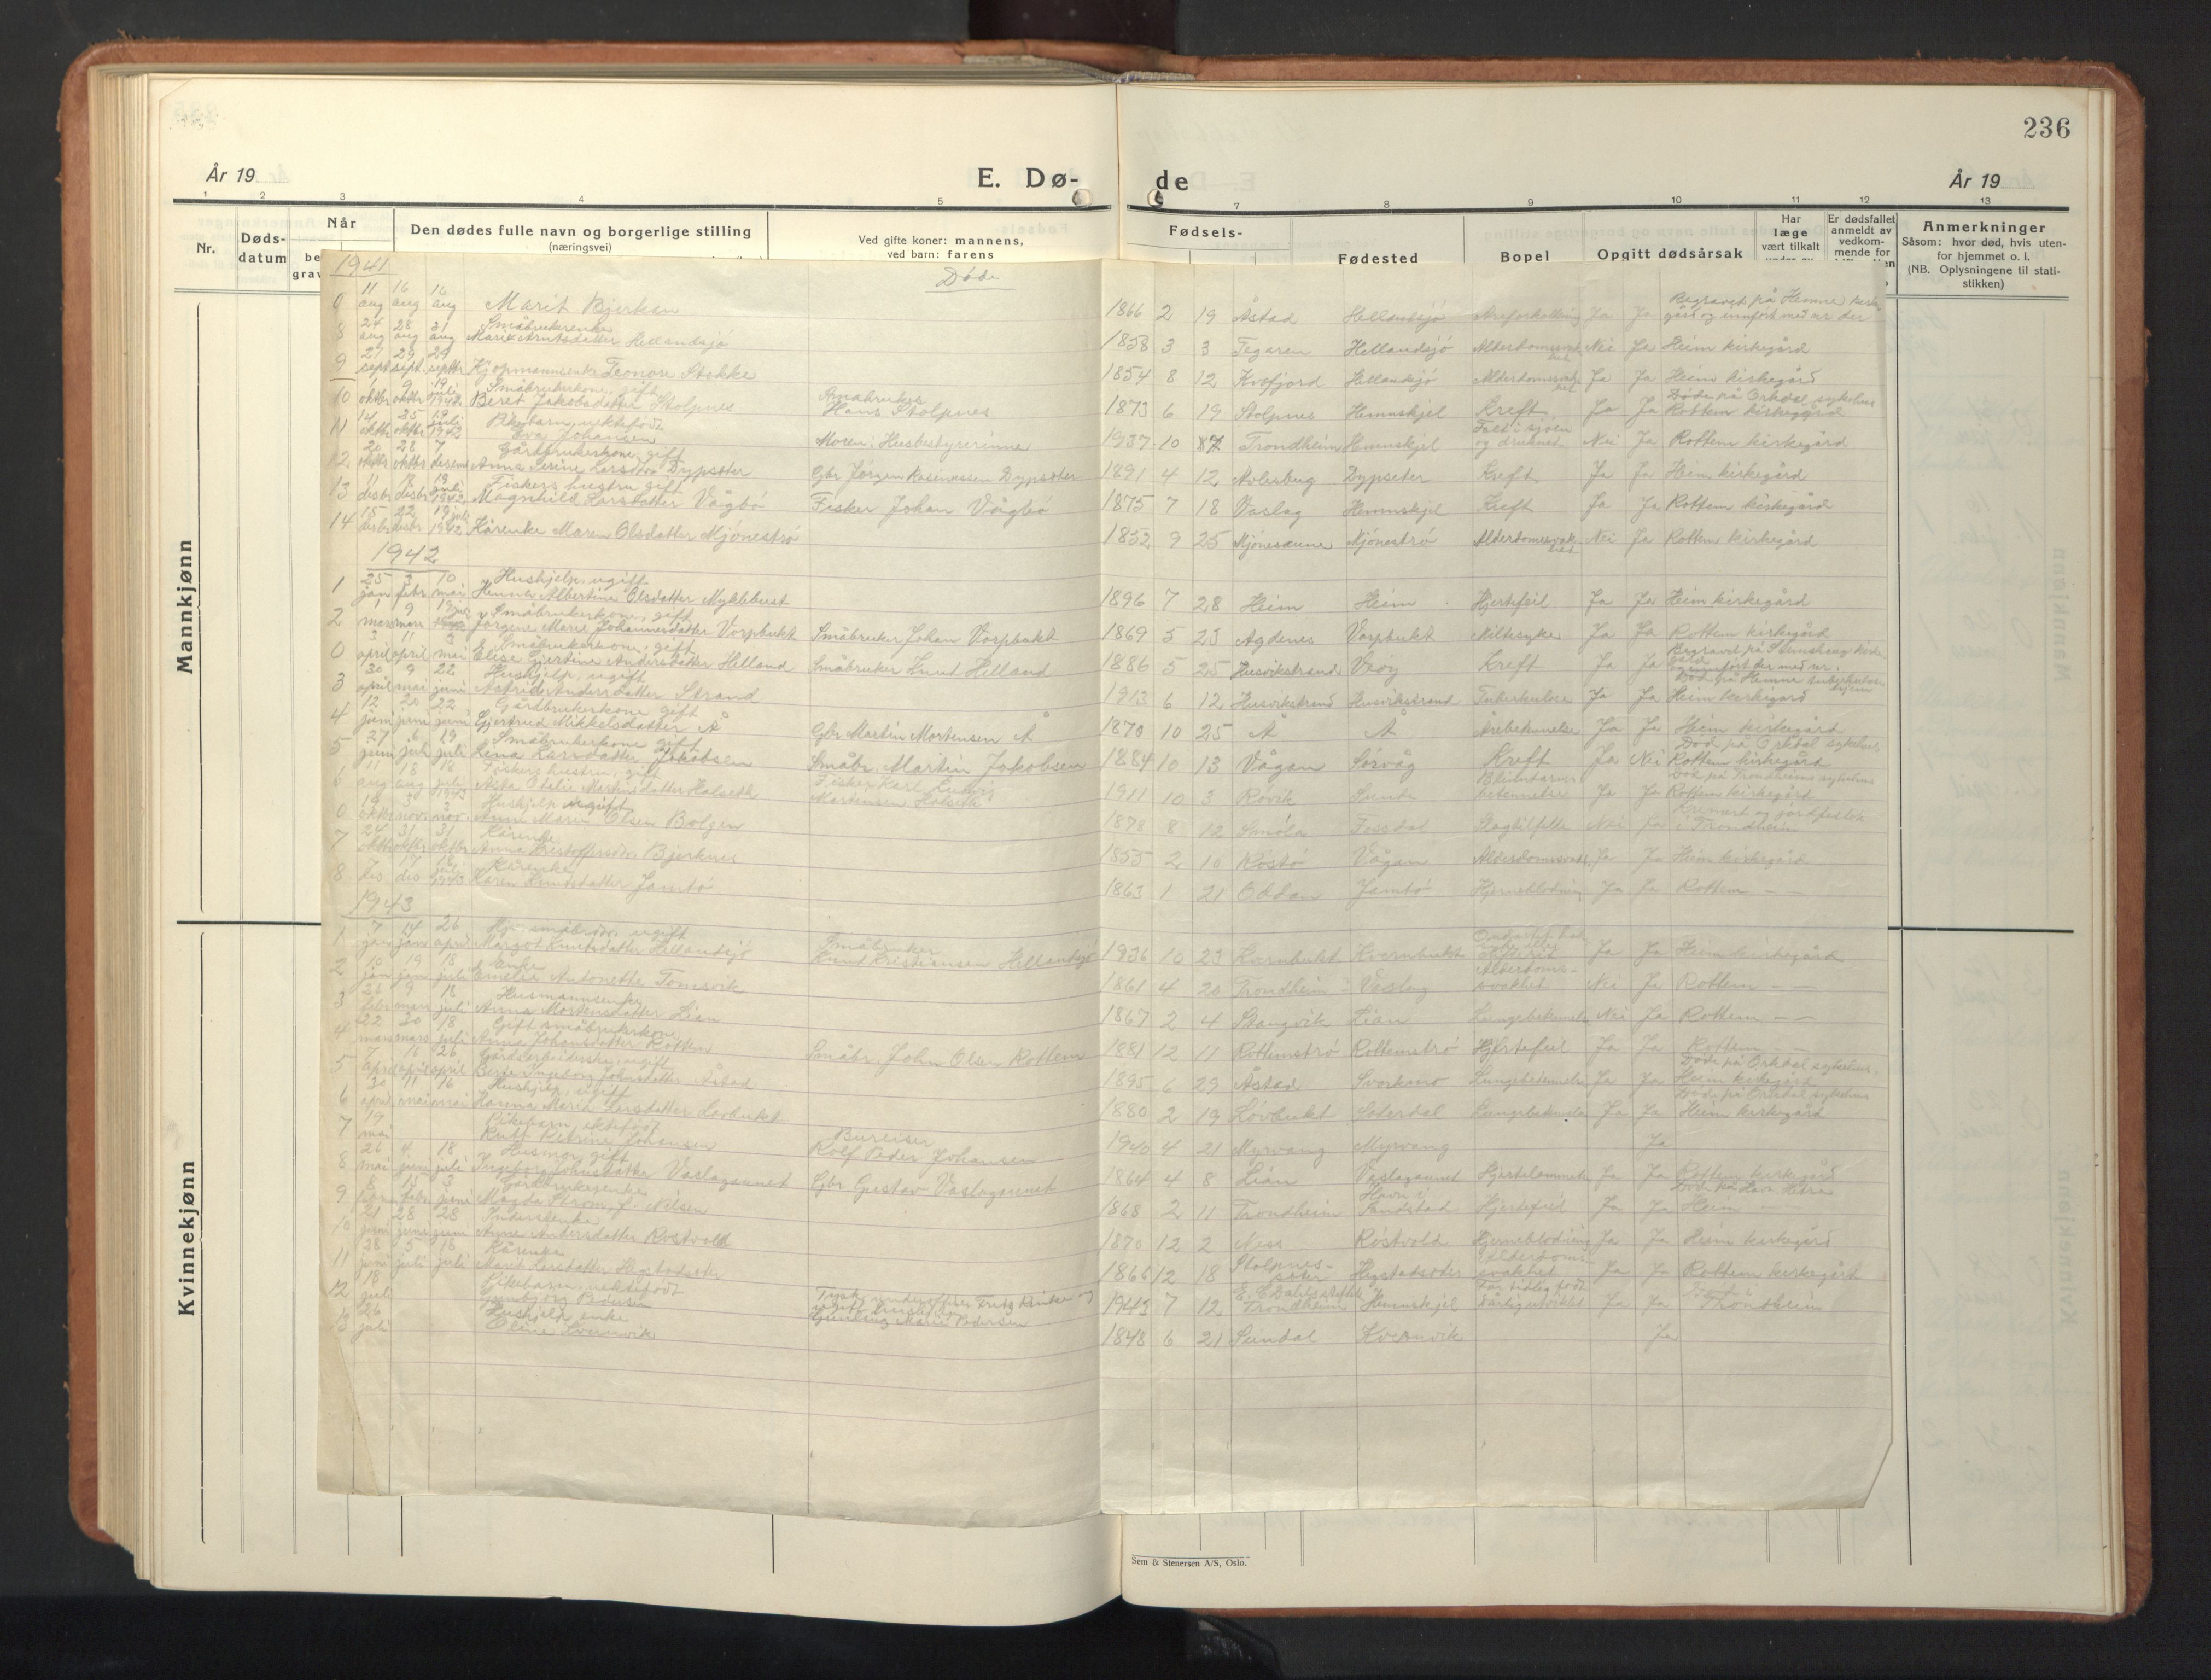 236
År 19
E. Dø-
de
År 19
1 2 3 4 5 7 8 9 10 11 12 13
Nr.
Døds-
datum
Når
be
grav
Den dødes fulle navn og borgerlige stilling
(næringsvei)
Ved gifte koner: mannens,
ved barn: farens
Fødsels-
Fødested
Bopel
Opgitt dødsårsak
Har
læge
vært tilkalt
Er dødsfallet
anmeldt av
vedkom-
mende for
Anmerkninger
Såsom: hvor død, hvis uten-
for hjemmet o. l.
(NB. Oplysningene til stati-
stikken)
Mannkjønn
Kvinnekjønn
1941
Døde
0 11 aug 16 aug 16 aug Marit Bjerksen 1866 2 19 Åstad Hellandsjö Åreforkalkning Ja Ja Begravet på Hemne kirke-
gård og innført med nr der
8 24 aug 28 aug 31 aug Småbrukerenke
Marit Arntsdatter Hellandsjö 1858 3 3 Tegaren Hellandsjö Alderdomssvak-
het Nei Ja Heim kirkegård
9 21 sept. 29 sept. 29 septbr Kjøpmannsenke Leonore Stokke 1854 8 12 Kvæfjord Hellandsjö Alderdomssvak-
het Ja Ja Heim kirkegård
10 1 oktbr 9 oktbr 19 juli 1942 Småbrukerkone, gift
Beret Jakobsdatter Stolpnes Småbruker
Hans Stolpnes 1873 6 19 Stolpnes Hemnskjel Kreft Ja Ja Døde på Orkdal sykehus
Rottem kirkegård
11 14 oktbr 25 oktbr 19 juli 1942 Pikebarn, uektefødt
Eva Johansen Moren: Husbestyrerinne 1937 10 7 Trondheim Hemnskjel Falt i sjøen
og druknet Nei Ja Rottem kirkegård
12 20 oktbr 28 oktbr 7 desem Gårdbrukerkone, gift
Anna Serine Larsdtr Dypseter Gbr Jørgen Rasmussen Dypseter 1891 4 12 Dypseter Kreft Ja Ja Heim kirkegård
13 11 desbr 18 desbr 19 juli 1942 Fiskers hustru, gift
Magnhild Larsdatter Vågbö Fisker Johan Vågbö 1875 7 18 Vaslag Hemnskjel Kreft Ja Ja Rottem kirkegård
14 15 desbr 22 desbr 19 juli 1942 Kårenke Maren Olsdatter Mjöneströ 1852 9 25 Mjönesaune Mjöneströ Alderdomssvak-
het Nei Ja Rottem kirkegård
1942
1 25 jan 3 febr 10 mai Hushjelp, ugift
Hanna Albertine Olsdatter Myklebust 1896 7 28 Heim Heim Hjertefeil Ja Ja Heim kirkegård
2 1 mars 9 mars Småbrukerkone, gift
Jörgine Marie Johannesdatter Vorpbukt Småbruker Johan Vorpbukt 1869 5 23 Agdenes Vorpbukt Miltesyke Ja Ja Rottem kirkegård
0 3 april 11 april 3 mai Småbrukerkone, gift
Elise Gjertine Andersdatter Helland Småbruker Knut Helland 1886 5 25 Husvikstrand Kreft Ja Ja Begravet på Stemshaug kirke-
gård
og innført der med nr.
3 30 april 9 mai 22 juni Hushjelp, ugift
Astrid Andersdatter Strand 1913 6 12 Husvikstrand Husvikstrand Tuberkulose Ja Ja Död på Hemne tuberkulose-
hjem
Heim kirkegård
4 12 juni 20 juni 22 juni Gårdbrukerkone, gift
Gjertrud Mikkelsdatter Å Gbr Martin Mortensen Å 1870 10 25 Å Å Årebetennelse Ja Ja Heim kirkegård
5 27 juni 6 juli 19 juli Småbrukerkone, gift
Lina Larsdatter Jakobsen Småbr. Martin Jakobsen 1884 10 13 Vågan Sörvåg Kreft Ja Nei Död på Orkdal sykehus
Rottem kirkegård
6 11 aug 18 aug 18 juli 1943 Fiskers hustru, gift
Asta Otelie Martinsdatter Halseth Fisker Karl Ludvig
Martinsen Halseth 1911 10 3 Røvik Sunde Blindtarms-
betennelse Ja Ja Död på Trondheims sykehus
Rottem kirkegård
0 19 oktbr 3 nov. 3 nov. Hushjelp, ugift
Anne Marie Olsen Bolgen 1878 8 12 Smöla Fossdal Slagtilfelle Nei Ja Kremert og jordfestet
i Trondheim
7 24 oktbr 31 oktbr 31 oktbr Kårenke
Anna Kristoffersdtr Bjerknes 1855 2 10 Röstö Vågan Alderdomssvakh. Ja Ja Heim kirkegård
8 7 des 17 des 18 juli 1943 Kårenke
Karen Knutsdatter Jamtö 1863 1 21 Oddan Jamtö Hjerneblödning Ja Ja Rottem — —
1943
1 7 jan 14 jan 26 april småbrdtr, ugift
Margot Knutsdatter Hellandsjö Småbruker
Knut Kristiansen Hellandsjö 1936 10 23 Kvernbukt Kvernbukt Ja Ja Heim kirkegård
2 10 jan 19 jan 18 juli Enke
Emelie Antonette Tomsvik 1861 4 20 Trondheim Vaslag Alderdoms-
svakhet Nei Ja Rottem — —
3 26 febr 9 mars 18 juli Husmannsenke
Anna Mortensdatter Lian 1867 2 4 Stangvik Lian Lungebetennelse Nei Ja Rottem — —
4 22 mars 30 mars 18 juli Gift småbrukerkone
Anna Johansdatter Rottem Småbr. John Olsen Rottem 1881 12 11 Rottemströ Rottemströ Hjertefeil Ja Ja Rottem — —
5 7 april 16 april 26 april Gårdsarbeiderske, ugift
Berit Ingeborg Johnsdatter Åstad 1895 6 29 Åstad Svorkmo Lungebetennelse Ja Ja Döde på Orkdal sykehus.
Heim kirkegård
6 30 april 11 mai 16 mai Hushjelp, ugift
Hanna Maria Larsdatter Lovbukt 1880 2 19 Lövbukt Seterdal Lungebetennelse Ja Ja Död på Orkdal sykehus
Heim kirkegård
7 19 mai Pikebarn, ektefödt
Ruth Petrine Johansen Bureiser
Rolf Peder Johansen 1940 4 21 Myrvang Myrvang Ja
8 26 mai 4 juni 18 juli Husmor, gift
Ingeborg Johnsdatter Vaslagsunet Gbr Gustav Vaslagsunet 1864 4 8 Lian Vaslagsunet Hjertelammelse Ja Ja Rottem kirkegård
9 8 febr 15 febr 3 juni Gårdbrukerenke
Magda Ström, f. Nilsen 1868 2 11 Trondheim Havn i
Sandstad Hjertefeil Ja Ja Döde på Havn Hitra
Heim — —
10 21 juni 28 juni 28 juni Inderstenke
Anne Andersdatter Röstvold 1870 12 2 Ness Röstvold Hjerneblödning Ja Ja Heim kirkegård
11 28 juni 5 juli 18 juli Kårenke
Marit Larsdatter Hegstadseter 1866 12 18 Stolpnes-
seter Hegstadseter Alderdoms-
svakhet Ja Ja Rottem kirkegård
12 18 juli Pikebarn, uektefödt
Gunnbjörg Pedersen Tysk underoffiser Fritz
Gunlaug Marie Pedersen 1943 7 12 E. C. Dahls stiftelse
Trondheim Hemnskjel For tidlig födt
Dårlig utviklet Ja Ja Trondheim
13 26 juli Hushjelp, enke
Eline Kvernvik 1848 6 21 Suindal Kvernvik Ja
Sem & Stenersen A/S, Oslo.